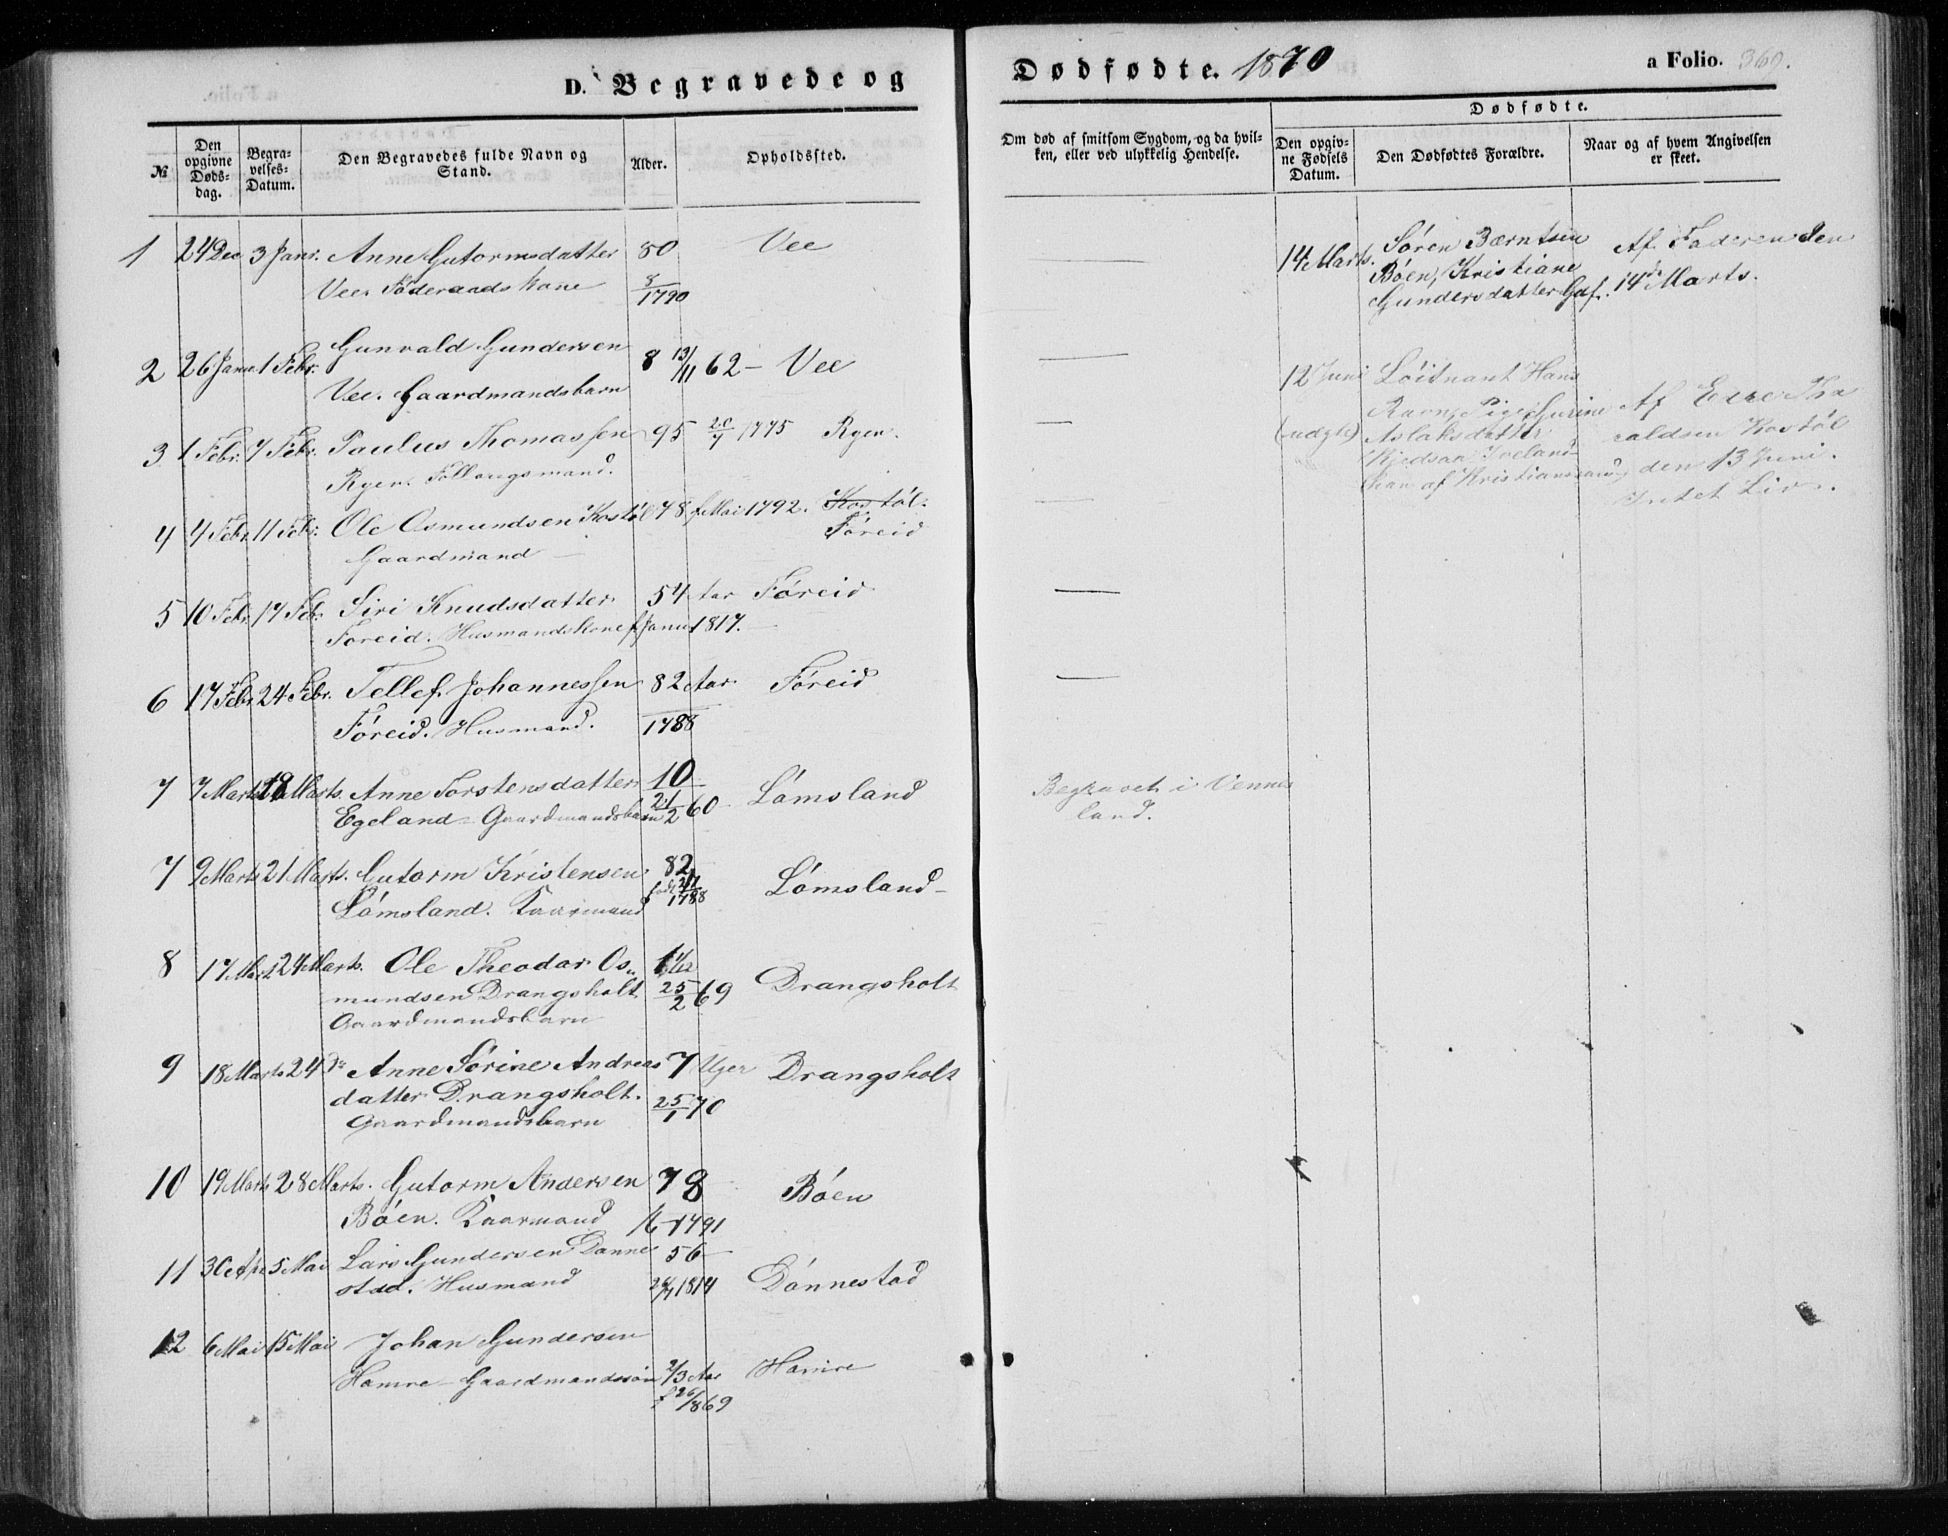 D. Begravede og
Dødfødte. 1870
a Folio. 369.
№
Den opgivne Dødsdag.
Begravelses-Datum.
Den Begravedes fulde Navn og Stand.
Alder.
Opholdssted.
Om død af smitsom Sygdom, og da hvilken, eller ved ulykkelig Hendelse.
Dødfødte.
Den opgivne Fødsels Datum.
Den Dødfødtes Forældre.
Naar og af hvem Angivelsen er skeet.
1 24 Dec 3 Janr. Anne Gutormsdatter 80 Vee
Vee. Føderaadskone 8/1790
2 26 Janu 1 Febr. Gunvald Gundersen 8 13/11 62 - Vee
Vee. Gaardmandsbarn
3 1 Febr. 7 Febr. Paulus Thomassen 95 20/7 1775 Ryen.
Ryen. Follaugsmand.
4 4 Febr. 11 Febr. Ole Osmundsen Kostøl 78 f Mai 1792. Kostøl.
Gaardmand Føreid
5 10 Febr. 17 Feb. Siri Knudsdatter 54 Aar Føreid
Føreid. Husmandskone f Janu 1817.
6 17 Febr. 24 Febr. Tellef Johannessen 82 Aar Føreid
Føreid. Husmand. 1788
7 7 Marts 19 Marts. Anne Torstensdatter 10 Lømsland
Egeland - Gaardmandsbarn 21/2 60
Begravet i Vennes
land.
7 9 Marts 21 Marts. Gutorm Kristensen 82 Lømsland
Lømsland. Kaarmand 1788
8 17 Marts 24 Marts. Ole Theodor Os-
mundsen Drangsholt 25/2 69 Drangsholt
Gaardmandsbarn
9 18 Marts 24 do Anne Sørine Andreas 7 Uger Drangsholt
datter Drangsholt. 25/1 70
Gaardmandsbarn
10 19 Marts 28 Marts. Gutorm Andersen 78 Bøen
Bøen. Kaarmand 1791
11 30 Apr 5 Mai Lars Gundersen Dønne 56
stad. Husmand 1814 Dønnestad
12 6 Mai 15 Mai Johan Gundersen
Hamre - Gaardmandssøn 2/3 Aar Hamre
f 26/8 69
14 Marts. Søren Bærntsen Af Faderen den
Bøen, Kristiane 14de Marts.
Gundersdatter Gdf.
12 Juni Løitnant Hans
Ravn, Pige Gurine Af
(udgte) Aslaksdatter aldsen Kostøl
Kjedsaa Iveland den 13 Juni.
han af Kristianssand Intet Liv.